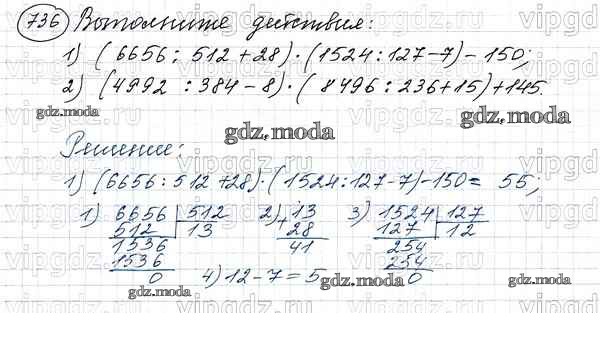 736 Выполните действия:
1) (6656 : 512 + 28) · (1524 : 127 - 7) - 150;
2) (4992 : 384 - 8) · (8496 : 236 + 15) + 145.
gdz.moda
gdz.moda
gdz.moda
Решение:
1) (6656 : 512 + 28) · (1524 : 127 - 7) - 150 = 55;
1) 6656 512 2) 13 3) 1524 127
512 13 + 28 127 12
1536 41 254
1536 254
0 4) 12 - 7 = 5 0
gdz.moda
gdz.moda
gdz.moda
vipgdz